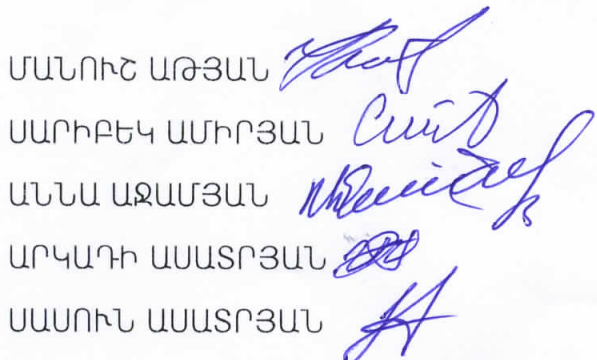 ՄԱՆՈՒՇ ԱԹՅԱՆ
ՍԱՐԻԲԵԿ ԱՄԻՐՅԱՆ
ԱՆՆԱ ԱՋԱՄՅԱՆ
ԱՐԿԱԴԻ ԱՍԱՏՐՅԱՆ
ՍԱՍՈՒՆ ԱՍԱՏՐՅԱՆ